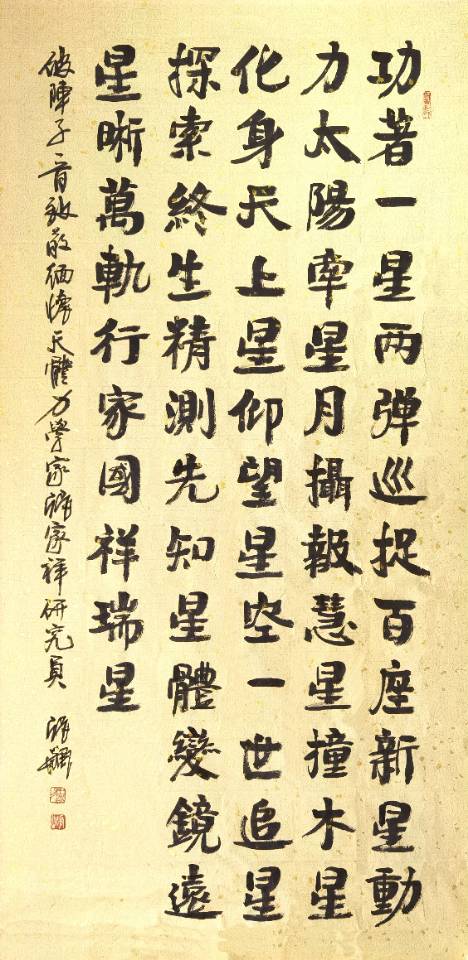 功著一星两弹巡捉百座新星動
力太陽牽星月攝報慧星撞木星
化身天上星仰望星空一世追星
探索終生精測先知星體變鏡遠
星晰萬軌行家國祥瑞星
破陣子一首致敬緬懷天體力學家張家祥研究員 張